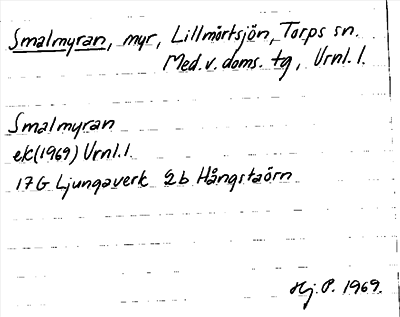 Smalmyran, myr, Lillmörtsjön, Torps sn.
Med. v. doms. tg, Vrnl. l.
Smalmyran
ek (1969) Vrnl. l.
17G Ljungaverk 2b Hångstaörn
Hj. P. 1969.